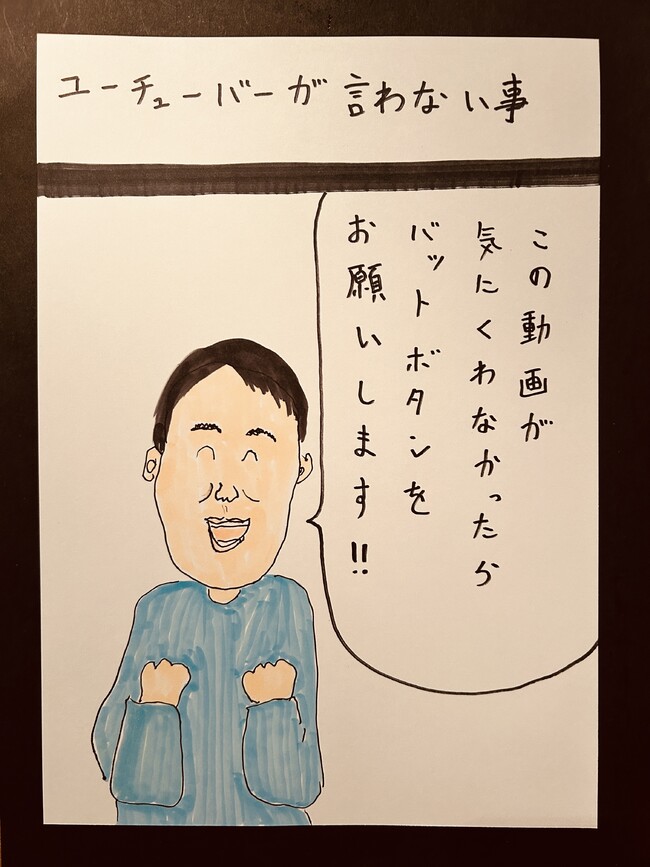 ユーチューバーが言わない事
この動画が
気にくわなかったら
バットボタンを
お願いします!!